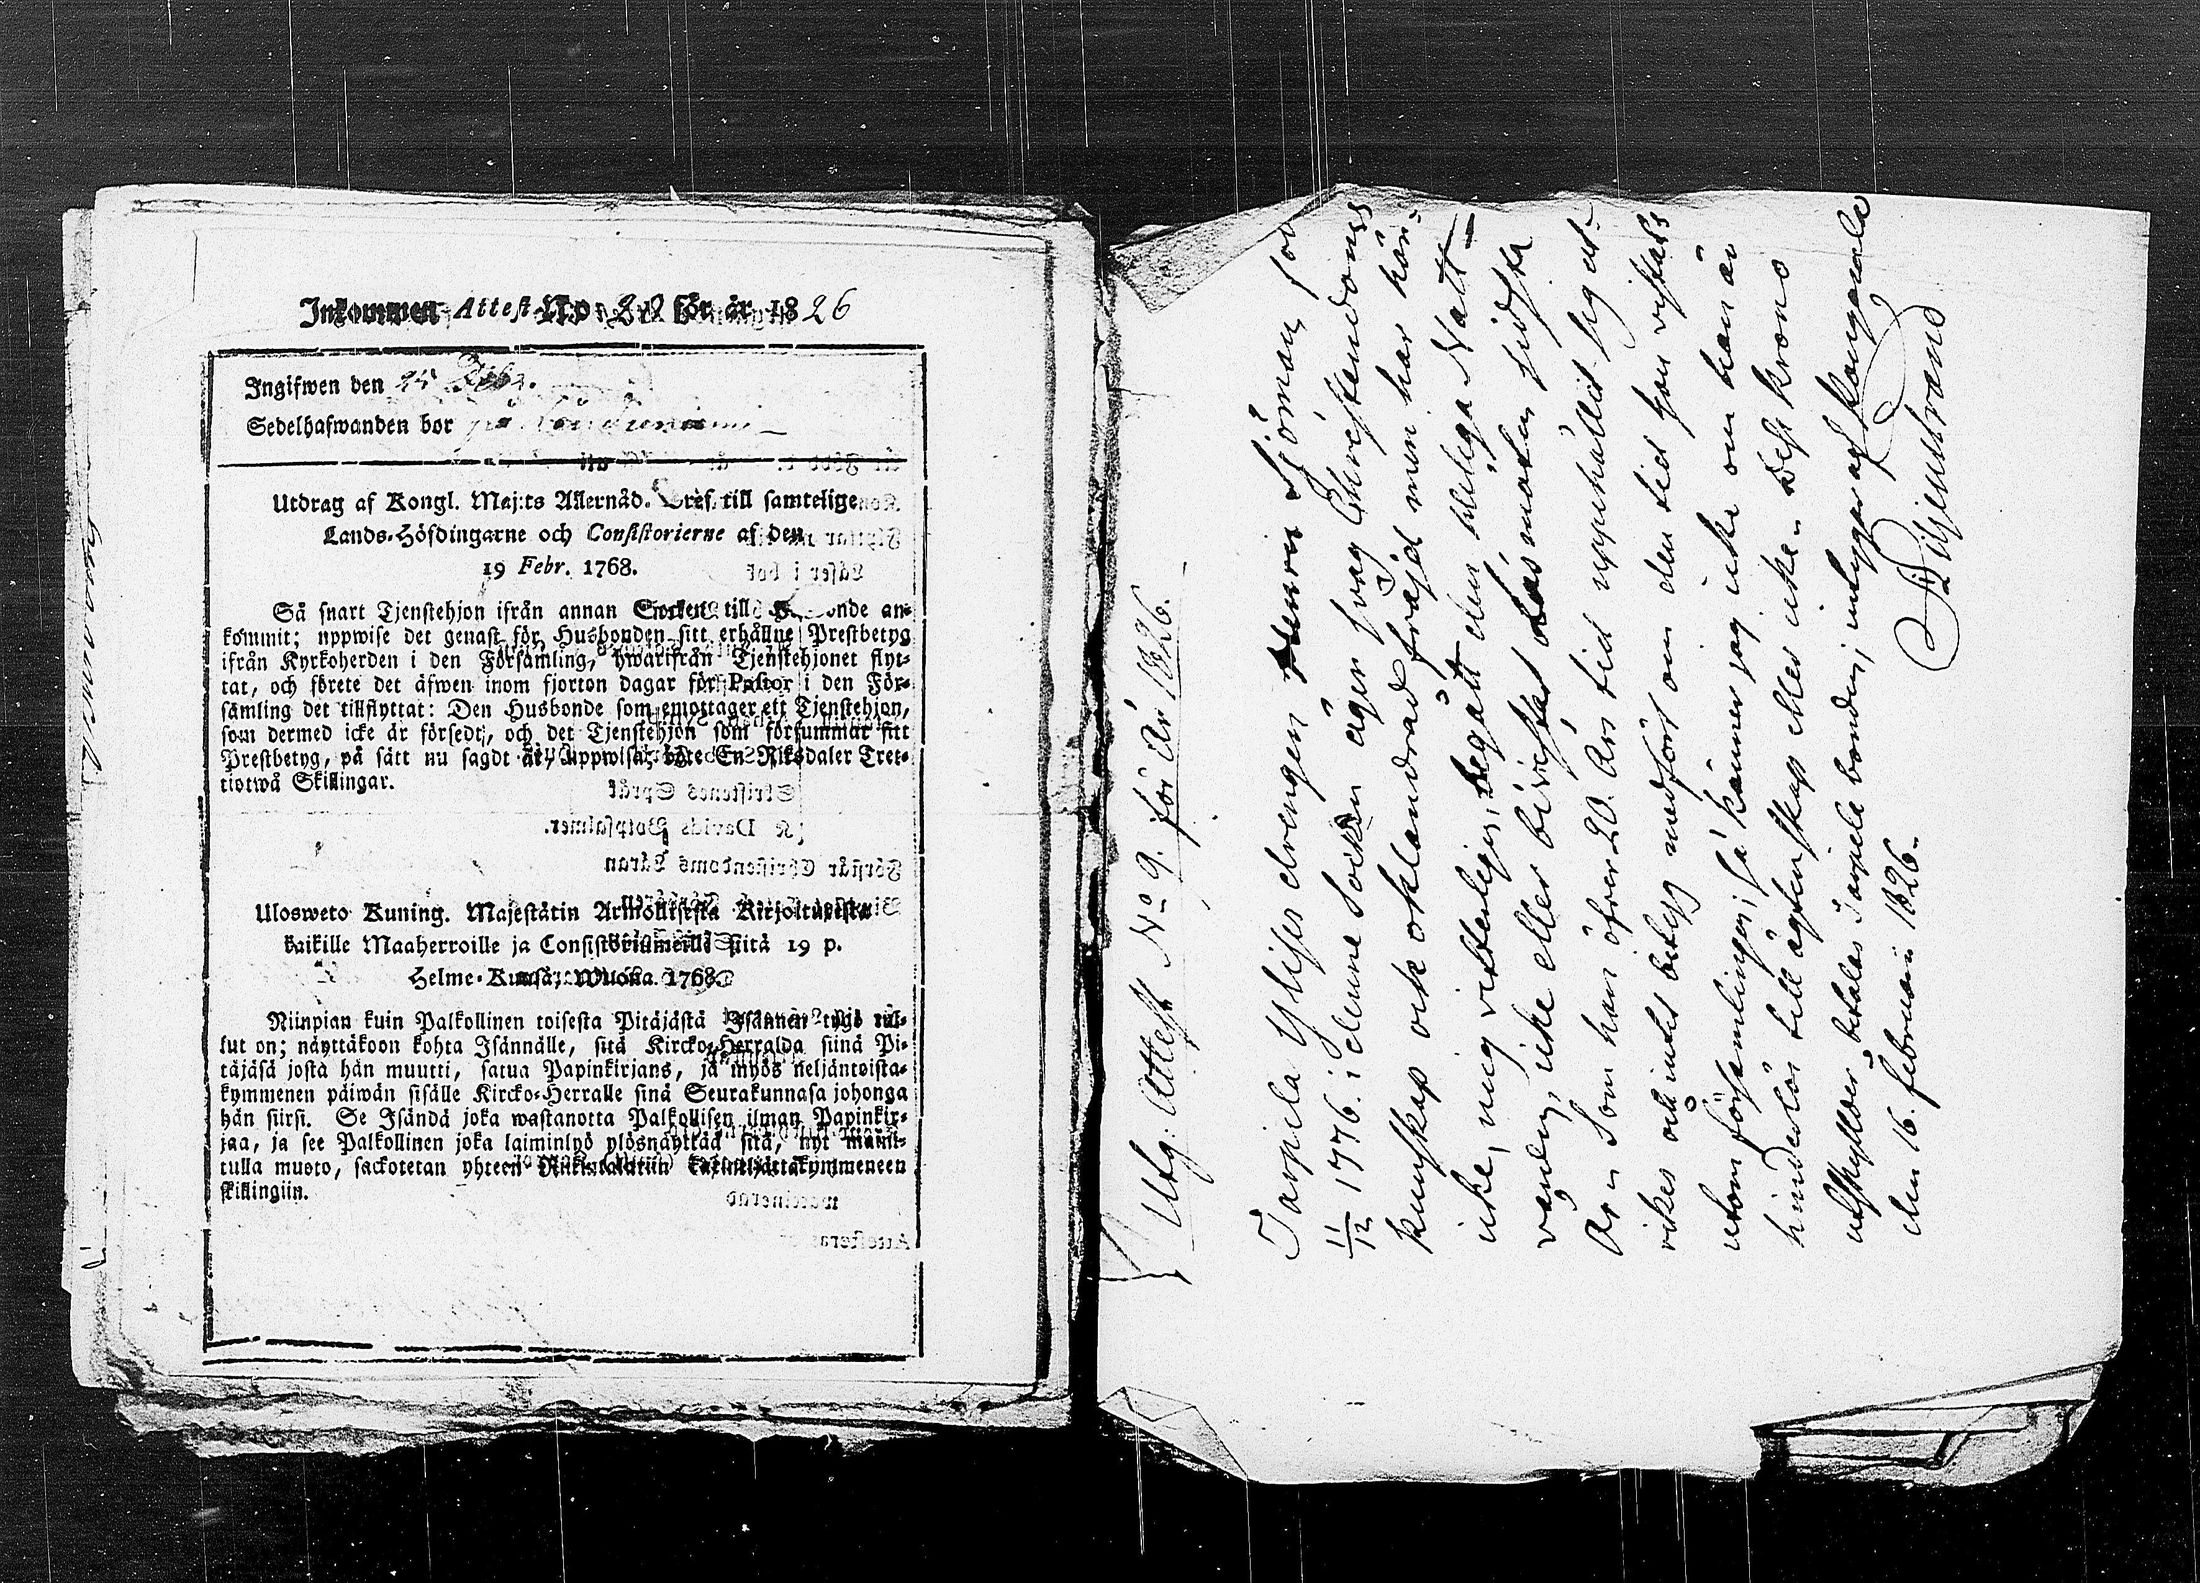 Inkommen Attest N:o 22 för år 1826
Ingifwen den 25 Febr.
Sedelhafwanden bor på
Utdrag af Kongl. Maj:ts Allernåd. Bref till samtelige
Lands-Höfdingarne och Consistorierne af den
19 Febr. 1768.
Så snart Tjenstehjon ifrån annan Socken till Husbonde an-
kommit; uppwise det genast för Husbonden sitt erhållne Prestbetyg
ifrån Kyrkoherden i den Församling, hwarifrån Tjenstehjonet flyt-
tat, och förete det äfwen inom fjorton dagar för Pastor i den För-
samling det tillflyttat: Den Husbonde som emottager ett Tjenstehjon,
som dermed icke är försedt, och det Tjenstehjon som försummar sitt
Prestbetyg, på sätt nu sagdt är, uppwisa, böte En Riksdaler Tret-
tiotwå Skillingar.
Ulosweto Kuning. Majestätin Armollisesta Kirjoituxesta
kaikille Maaherroille ja Consistoriumeille siitä 19 p.
Helme-Kuusa, Wuonna 1768.
Niinpian kuin Palkollinen toisesta Pitäjästä Isännän tygö tul-
lut on; näyttäkoon kohta Isännälle, sitä Kircko-Herralda siinä Pi-
täjäsä josta hän muutti, saatua Papinkirjans, ja myös neljäntoista-
kymmenen päiwän sisälle Kircko-Herralle siinä Seurakunnasa johonga
hän siirsi. Se Isändä joka wastanotta Palkollisen ilman Papinkir-
jaa, ja see Palkollinen joka laiminlyö ylösnäyttää sitä, nyt mainit-
tulla muoto, sackotetan yhteen Riikintaleriin kolmekymmeneen
skillingiin.
Utg. Attest No 9. för År 1826.
Tarpila Ylises drengen Henric Sjöman, född
11/12 1776. i denne Socken äger svag Christendoms
kunskap och oklandrad frejd men har här-
icke, mig vitterligen, begått den heliga Natt-
varden, icke eller bivistat Läsmöten sidsta
År. Som han öfver 20. Års tid uppehållit sig ut-
rikes och intet betyg medfört om den tid han vistats
utom församlingen; så känner jag icke om han är
hinderlös till ägtenskap eller icke. Dess krono
utskylder betalas Tarpila bonden, intygar af Kangasala
den 16. februarii 1826.